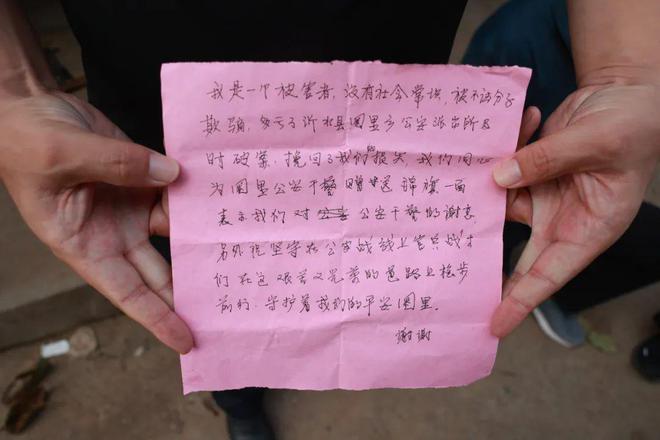 我是一个被害者，没有社会常识，被不法分子
欺骗，多亏了沂水县圈里乡公安派出所及
时破案，挽回了我们的损失，我们同心
为圈里公安干警赠送锦旗一面
表示我们对公安干警的谢意
另外祝坚守在公安战线上官兵战士
们在这艰苦又光荣的道路上稳步
前行，守护着我们的平安圈里。
谢谢